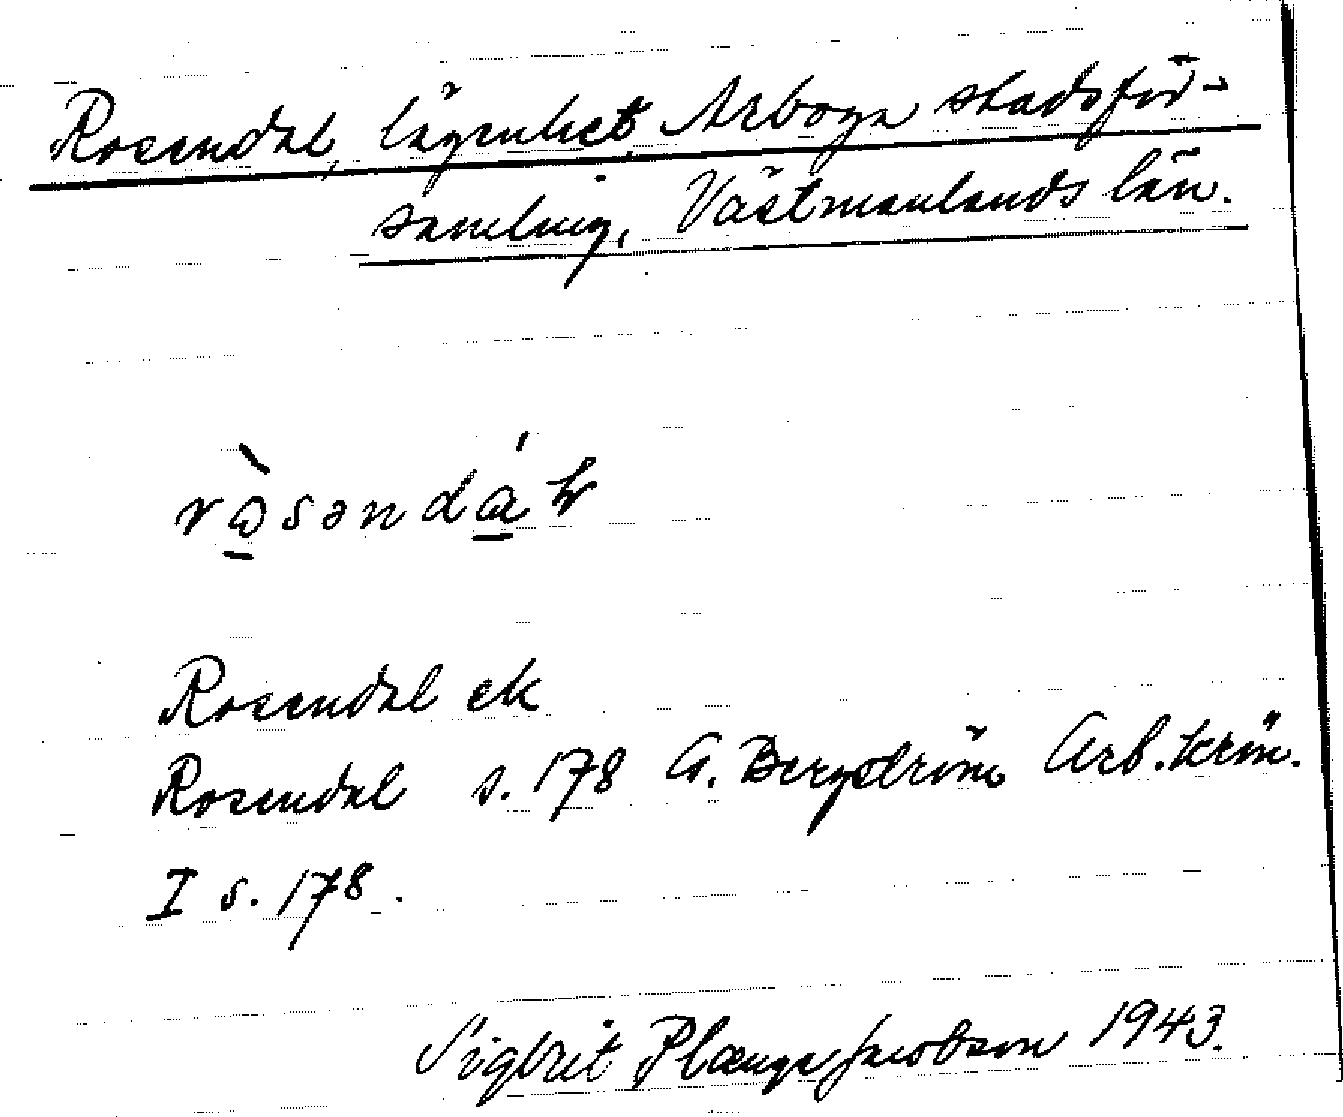 Rosendal, lägenhet, Arboga stadsför-
samling, Västmanlands län.
Rosendal ek
Rosendal s. 178 G. Bergström Arb. krön.
I s. 178.
Sigbrit Plænge Jacobson 1943.